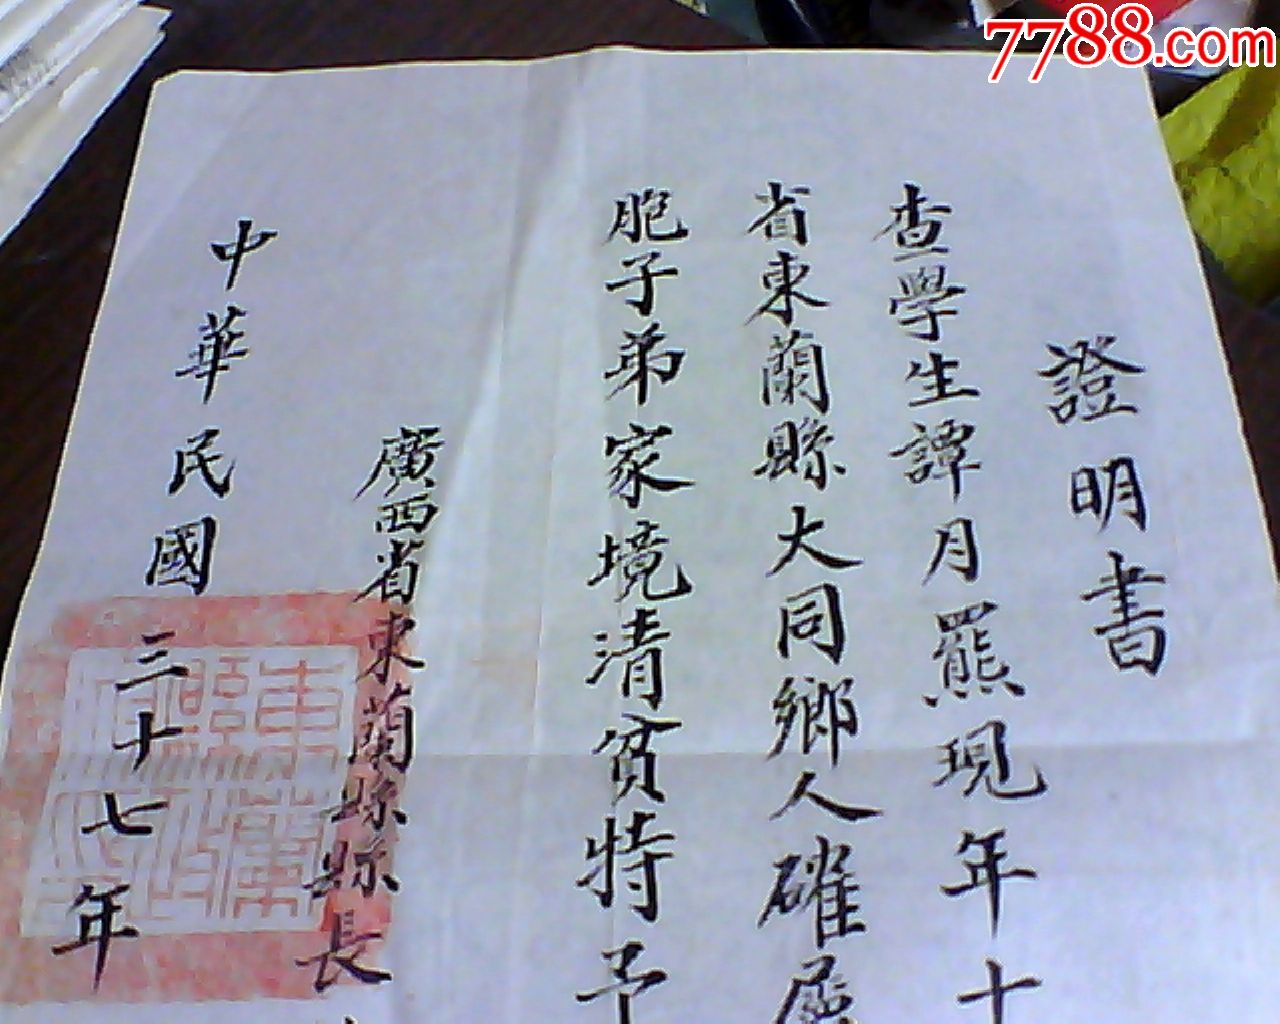 7788.com
證明書
查學生譚月羆現年十
省東蘭縣大同鄉人確屬
胞子弟家境清貧特予
廣西省東蘭縣縣長
中華民國三十七年
東蘭縣政府印